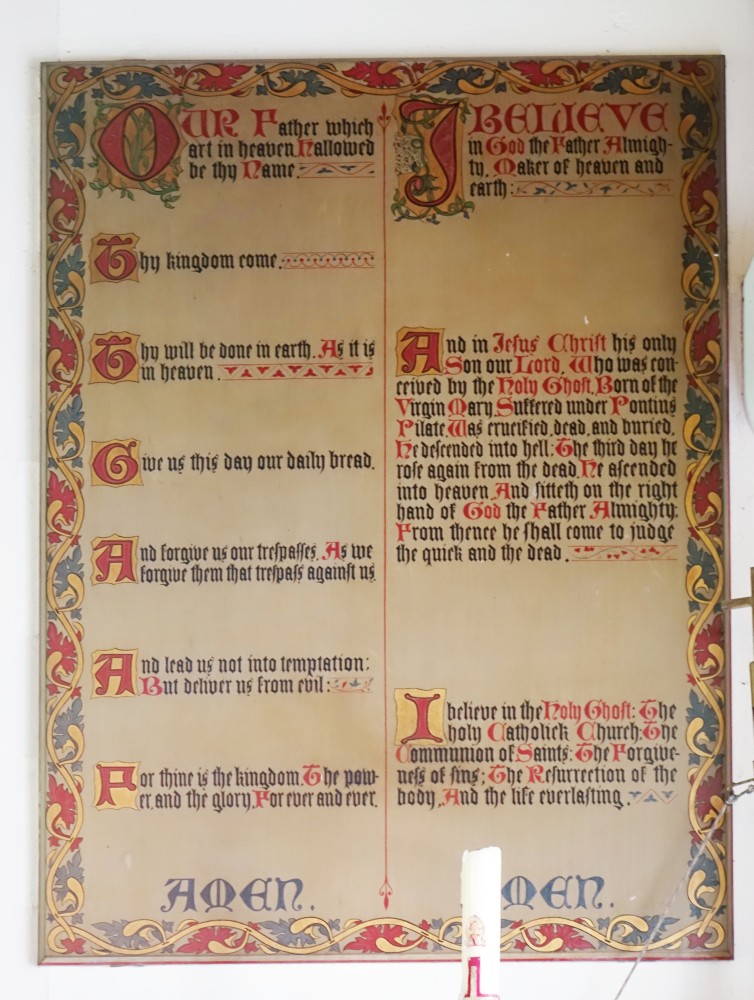 OUR Father which
art in heaven Hallowed
be thy Name.
Thy kingdom come.
Thy will be done in earth. As it is
in heaven.
Give us this day our daily bread.
And forgive us our treſpaſſes. As we
forgive them that treſpaſs againſt us
And lead us not into temptation:
But deliver us from evil:
For thine is the kingdom. The pow-
er, and the glory, For ever and ever.
AMEN.
I BELIEVE
in God the Father Almigh-
ty, Maker of heaven and
earth:
And in Jeſus Chriſt his only
Son our Lord, Who was con-
ceived by the Holy Ghoſt, Born of the
Virgin Mary, Suffered under Pontius
Pilate, Was crucified, dead, and buried.
He deſcended into hell: The third day he
roſe again from the dead. He aſcended
into heaven, And ſitteth on the right
hand of God the Father Almighty;
From thence he ſhall come to judge
the quick and the dead.
I believe in the Holy Ghoſt: The
holy Catholick Church: The
Communion of Saints: The Forgive-
neſs of ſins; The Reſurrection of the
body, And the life everlaſting.
MEN.